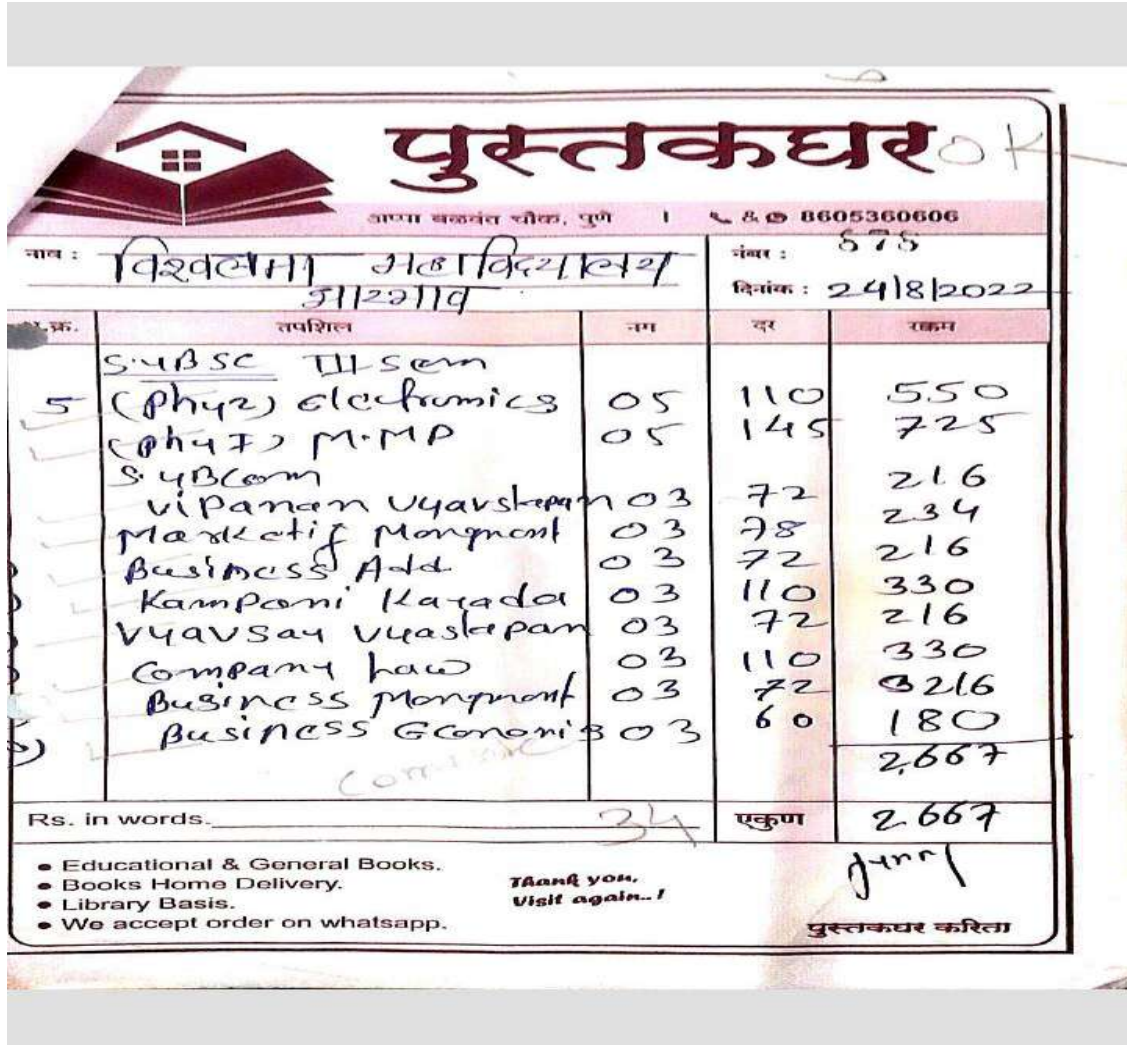 पुस्तकघर OK
अप्पा बळवंत चौक, पुणे | & 8605360606
नाव : विश्वलता महाविद्यालय
नंबर : 575
दिनांक : 24/8/2022
क्र. तपशिल नग दर रक्कम
S.YBSC III Sem
5 (Phy2) Electronics 05 110 550
(Phy I) M.MP 05 145 725
S.YBCom
Vipanan Vyavstapan 03 72 216
Marketif Mongment 03 78 234
Business Add 03 72 216
Kampani Kayada 03 110 330
Vyavsay Vyastapan 03 72 216
Company Law 03 110 330
Business Mongment 03 72 216
Business Economis 03 60 180
2,667
Rs. in words. 34 एकुण 2667
• Educational & General Books.
• Books Home Delivery.
• Library Basis.
• We accept order on whatsapp.
Thank you,
Visit again..!
पुस्तकघर करिता